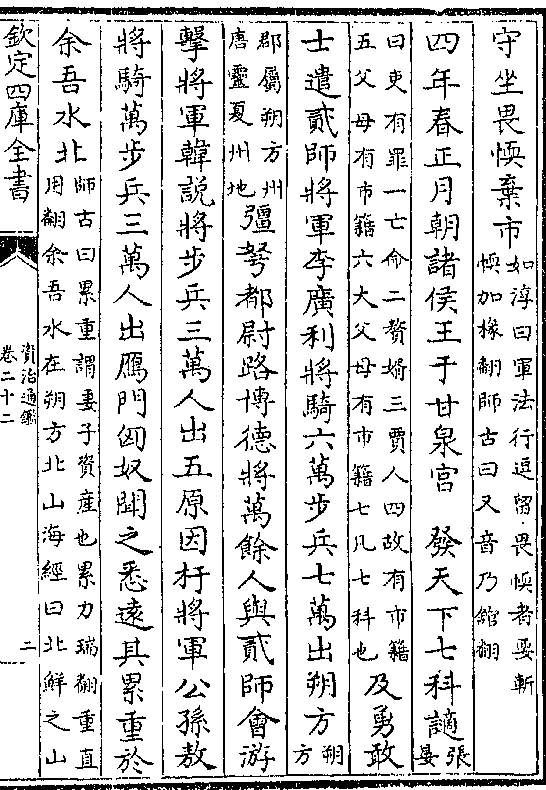 守坐畏愞棄市如淳曰軍法行逗留畏愞者要斬
愞加椽翻師古曰又音乃館翻
四年春正月朝諸侯王于甘泉宮　發天下七科讁張
晏
曰吏有罪一亡命二贅婿三賈人四故有市籍
五父母有市籍六大父母有市籍七凡七科也及勇敢
士遣貳師將軍李廣利將騎六萬步兵七萬出朔方朔
方
郡屬朔方州
唐靈夏州地彊弩都尉路博德將萬餘人與貳師會游
擊將軍韓説將步兵三萬人出五原因杅將軍公孫敖
將騎萬步兵三萬人出鴈門匈奴聞之悉遠其累重於
余吾水北師古曰累重謂妻子資産也累力瑞翻重直
用翻余吾水在朔方北山海經曰北鮮之山
欽定四庫全書
資治通鑑
卷二十二
二